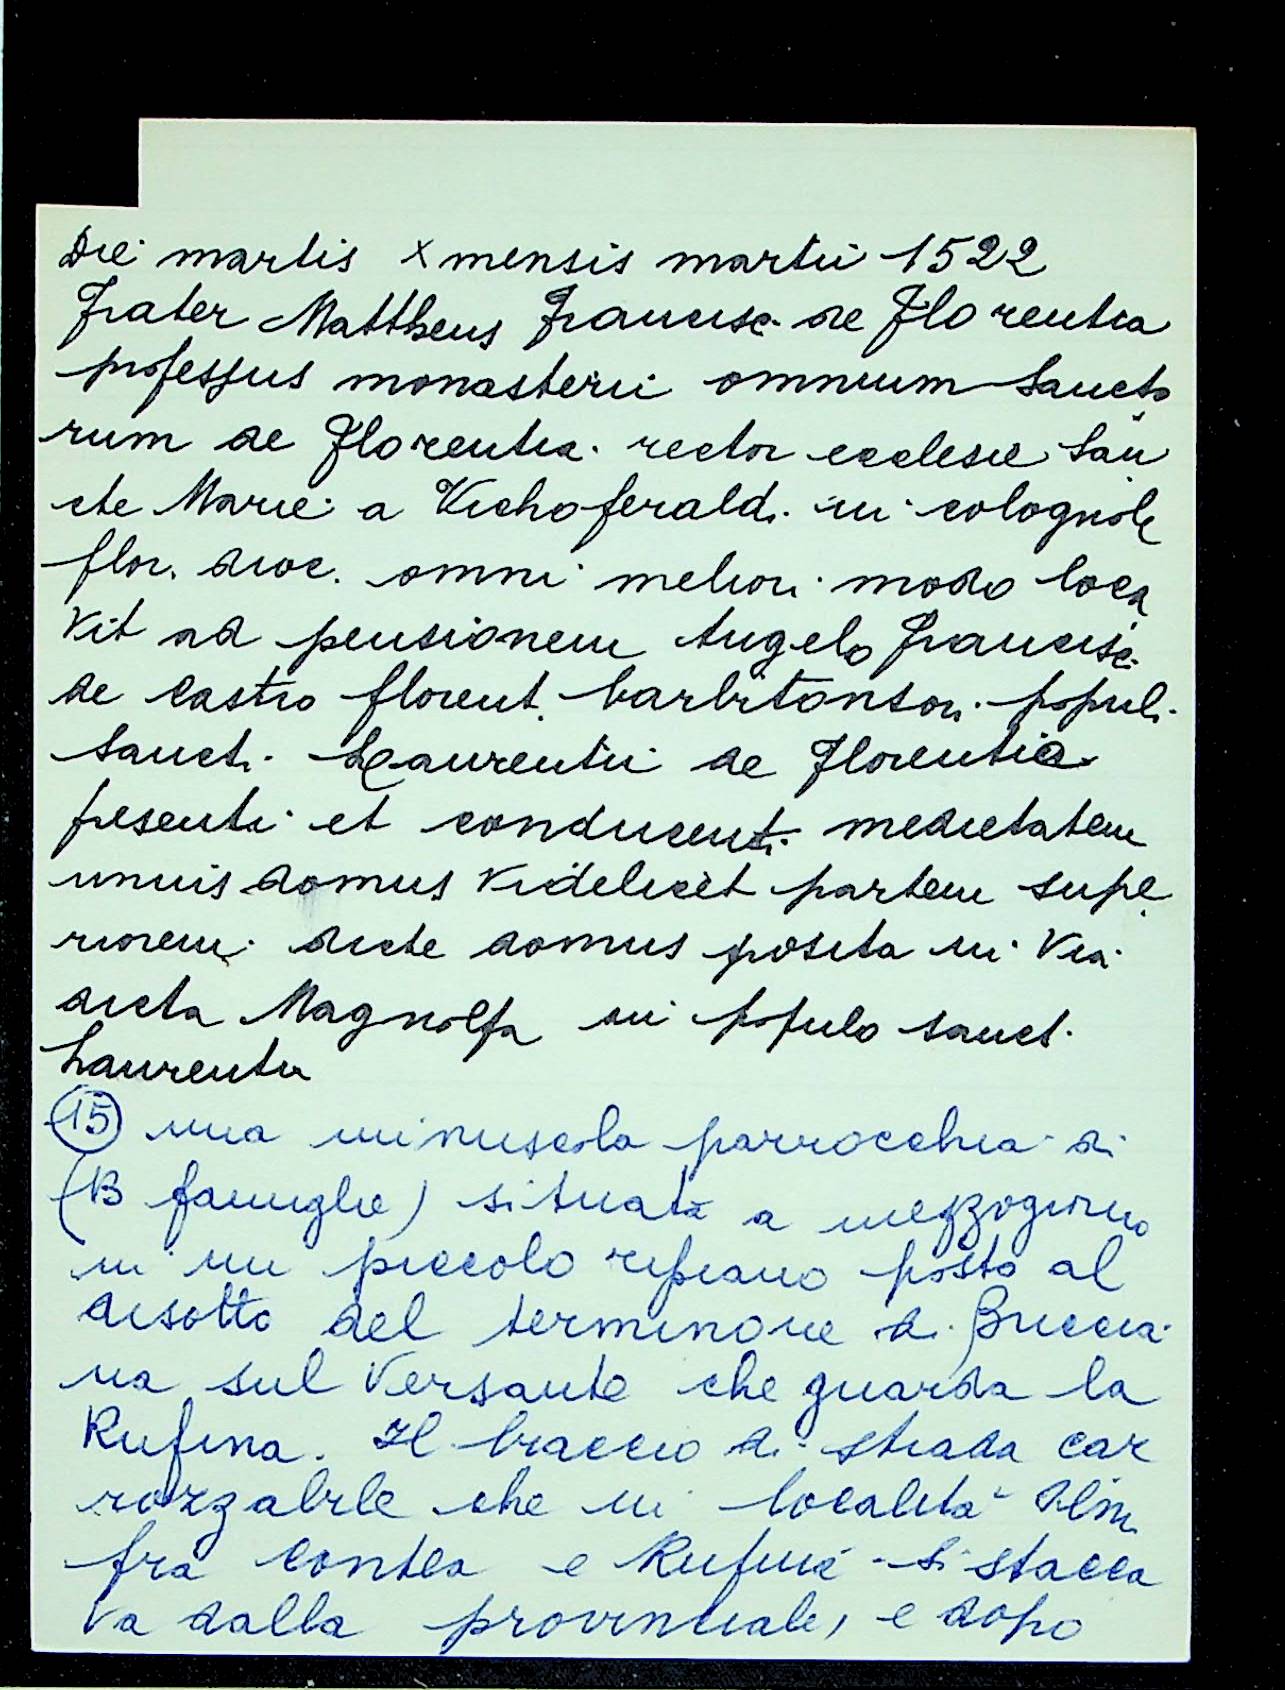 Die martis x mensis martii 1522
frater Mattheus Francisc. de Florentia
professus monasterii omnium Sancto
rum de Florentia. rector ecclesie San
cte Marie a Vichoferaldi. in colognole
flor. dioc. omni meliori modo loca
vit ad pensionem Angelo Francisc.
de Castro florent. barbitonsori. populi.
Sancti. Laurentii de Florentia
presenti et conducenti. medietatem
unius domus videlicet partem supe
riorem. dicte domus posita in Via
dicta Magnolfa in populo sanct.
Laurentii
(15) una minuscola parrocchia di
(13 famiglie) situata a mezzogiorno
in un piccolo ripiano posto al
disotto del terminone di Buccia
na sul versante che guarda la
Rufina. Il braccio di strada car
rozzabile che in località
fra Contea e Rufina si stacca
va dalla provinciale, e dopo